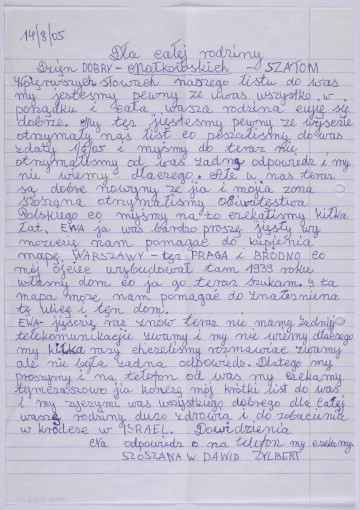 14/8/05
Dla całej rodziny
Dzięn DOBRY - Małkowskich - SZATOM
W pierwszych słowach naszego listu do was
my jesteśmy pewny ze uwas wszystko w
porządku i cała wasza rodzina czuję się
dobrze. My też jiesteśmy pewny ze wyście
otrzymały nas list co posełaliśmy do was
z daty 1/5/05 i myśmy do teraz nie
otrzymaliśmy od was żadną odpowiedz i my
nie wiemy dlaczego. Ale u nas teraz
są dobre nowyny ze jia i mojia zona
szoszana otrzymaliśmy Obiwatęstwa
Polskiego co myśmy na to czekaliśmy kilka
lat. EWA ja was bardzo proszę jiesty wy
mozecię nam pomagać do kupienia
mapę WARSZAWY - też PRAGA i BRÓDNO co
mój Ojciec wybudował tam 1939 roku
własny dom co ja go teraz szukam. I ta
mapa może nam pomagać do znalezniena
tę ulicę i ten dom.
EWA - jiesce raz znów teraz nie mamy żadnej
telekomunikacjie zwamy i my nie wiemy dlaczego
my kilka rasy chcelismy rozmawiac zwamy
ale nie była żadna odpowiedz. Dlatego my
prosymy i na telefon od was my czekamy.
tymczasowo jia koncze mój krótki list do was
i my zyczymy was wszystkiego dobrego dla całej
waszej rodziny, duzo zdrowia i do zobaczenia
w krótce w ISRAEL. Dowidzienia
Na odpowiedz o na telefon my czekamy.
SZOSZANA w DAWID ZYLBERT